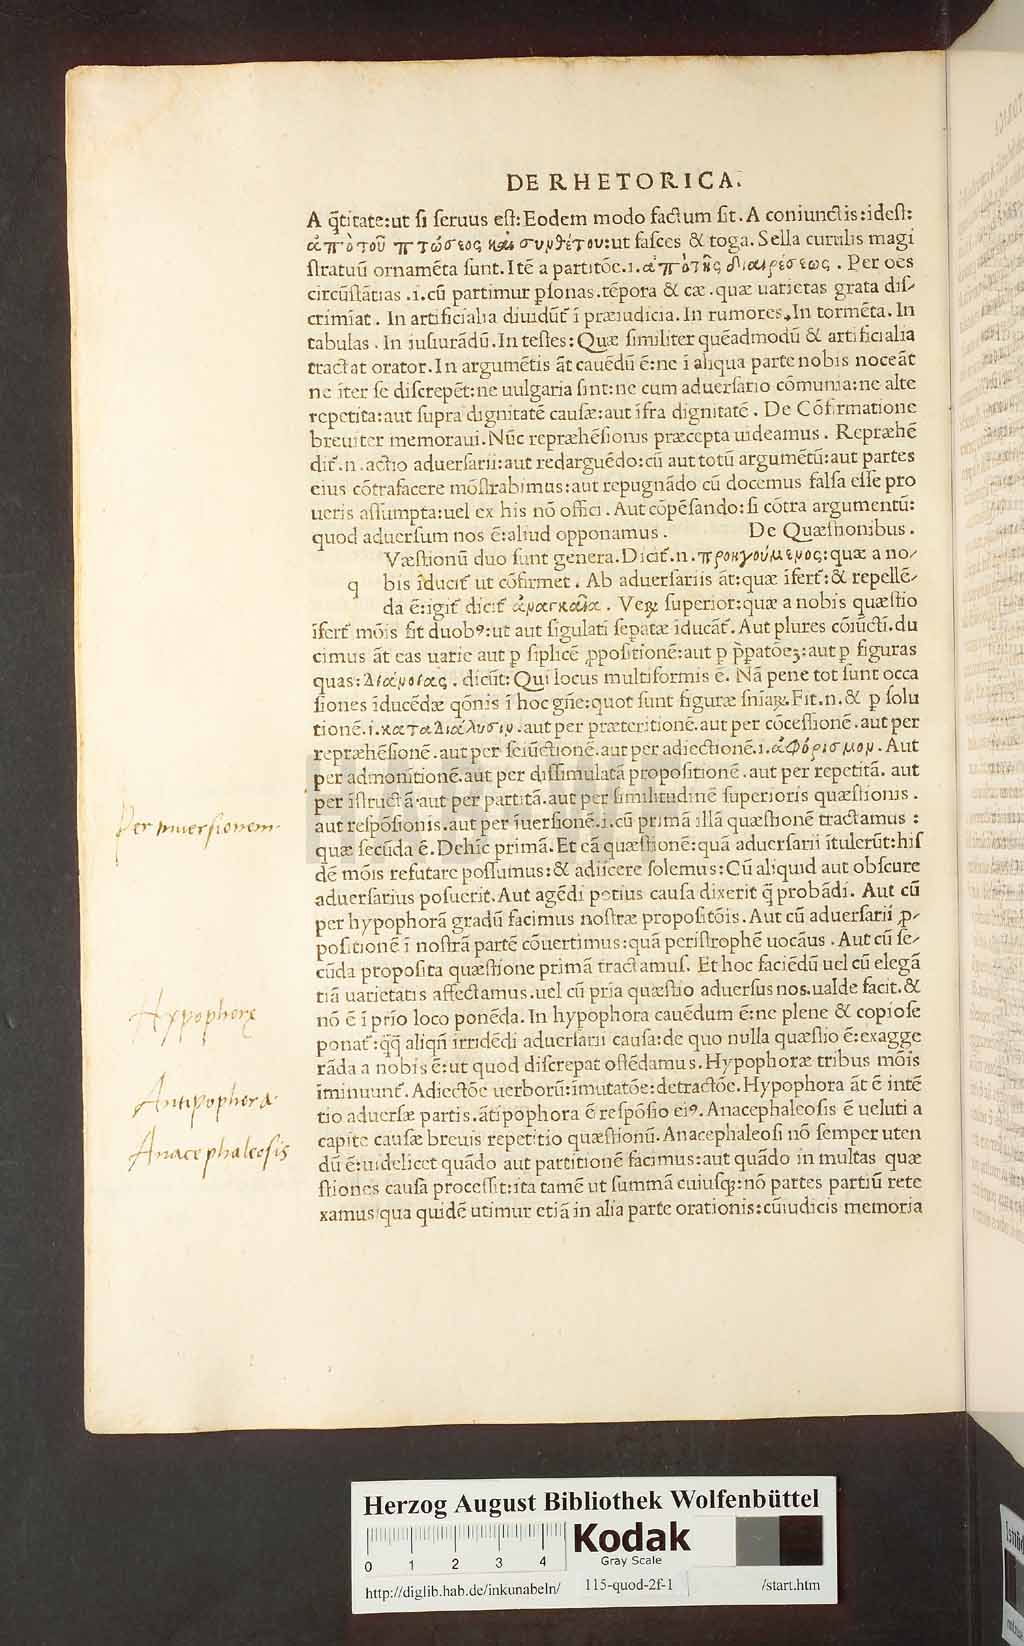 DE RHETORICA.
A q̄titate:ut si seruus est: Eodem modo factum sit. A coniunctis:idest:
ἀπὸ τοῦ πτώσεος καὶ συνθέτου:ut fasces & toga. Sella curulis magi
stratuū ornamēta sunt. Itē a partitōe.i.ἀπὸ τῆς διαιρέσεως. Per oēs
circūstātias .i.cū partimur p̱sonas.tēpora & cæ.quæ uarietas grata dis-
crimīat. In artificialia diuidūt᷑ ī præiudicia. In rumores. In tormēta. In
tabulas. In iusiurādū. In testes: Quæ similiter quēadmodū & artificialia
tractat orator. In argumētis āt cauēdū ē:ne ī aliqua parte nobis noceāt
ne īter se discrepēt:ne uulgaria sint:ne cum aduersario cōmunia:ne alte
repetita:aut supra dignitatē causæ:aut īfra dignitatē. De Cōfirmatione
breuiter memoraui. Nūc repræhēsionis præcepta uideamus. Repræhē
dit᷑.n.actio aduersarii:aut redarguēdo:cū aut totū argumētū:aut partes
eius cōtrafacere mōstrabimus:aut repugnādo cū docemus falsa esse pro
ueris assumpta:uel ex his nō offici. Aut cōpēsando:si cōtra argumentū:
quod aduersum nos ē:aliud opponamus. De Quæstionibus.
Væstionū duo sunt genera. Dicit᷑.n.προηγούμενος:quæ a no-
q bis īducit᷑ ut cōfirmet. Ab aduersariis āt:quæ īfert᷑:& repellē-
da ē:igit᷑ dicit᷑ ἀναγκαῖα. Veꝝ superior:quæ a nobis quæstio
īfert᷑ mōis fit duobꝰ:ut aut sigulati sep̱atæ īducāt᷑. Aut plures cōiūcti.du
cimus āt eas uarie aut p̱ siplicē ꝓpositionē:aut p̱ p̄p̱atōeꝫ:aut p̱ figuras
quas:διανοίας. dicūt: Qui locus multiformis ē. Nā pene tot sunt occa
siones īducēdæ qōnis ī hoc gn̄e:quot sunt figuræ sn̄iaꝝ. Fit.n.& p̱ solu
tionē.i.κατα διάλυσιν.aut per præteritionē.aut per cōcessionē.aut per
repræhēsionē.aut per seiūctionē.aut per adiectionē.i.ἀφόρισμον. Aut
per admonitionē.aut per dissimulatā propositionē.aut per repetitā. aut
per īstructā.aut per partitā.aut per similitudinē superioris quæstionis.
aut respōsionis.aut per īuersionē.i.cū primā illā quæstionē tractamus:
quæ secūda ē. Dehīc primā. Et eā quæstionē:quā aduersarii ītulerūt:his
dē mōis refutare possumus:& adiicere solemus: Cū aliquid aut obscure
aduersarius posuerit. Aut agēdi potius causa dixerit q̄ probādi. Aut cū
per hypophorā gradū facimus nostræ propositōis. Aut cū aduersarii ꝓ-
positionē ī nostrā partē cōuertimus:quā peristrophē uocāus. Aut cū se-
cūda proposita quæstione primā tractamus. Et hoc faciēdū uel cū elegā
tiā uarietatis affectamus.uel cū pria quæstio aduersus nos.ualde facit.&
nō ē ī prīo loco ponēda. In hypophora cauēdum ē:ne plene & copiose
ponat᷑:q̄q̄ aliqn̄ irridēdi aduersarii causa:de quo nulla quæstio ē:exagge
rāda a nobis ē:ut quod discrepat ostēdamus. Hypophoræ tribus mōis
īminuunt᷑. Adiectōe uerborū:īmutatōe:detractōe. Hypophora āt ē intē
tio aduersæ partis.ātipophora ē respōsio eiꝰ. Anacephaleosis ē ueluti a
capite causæ breuis repetitio quæstionū. Anacephaleosi nō semper uten
dū ē:uidelicet quādo aut partitionē facimus:aut quādo in multas quæ
stiones causa processit:ita tamē ut summā cuiusqꝫ:nō partes partiū rete
xamus/qua quidē utimur etiā in alia parte orationis:cū iudicis memoria
Per inuersionem.
Hypophore
Antipophora.
Anacephaleosis
HAB-WF
Herzog August Bibliothek Wolfenbüttel
0 1 2 3 4
Kodak
Gray Scale
http://diglib.hab.de/inkunabeln/ 115-quod-2f-1 /start.htm